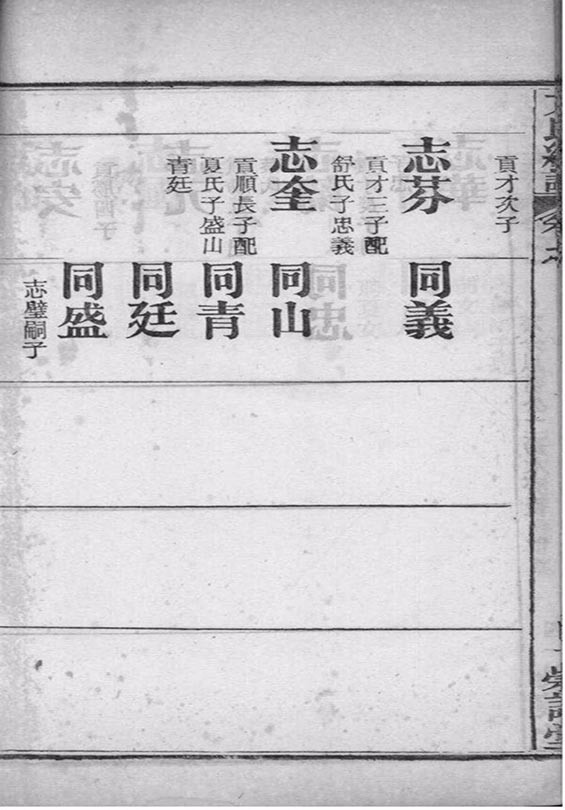 貢才次子
志芬
貢才三子配
舒氏子忠義
志奎
貢順長子配
夏氏子盛山
青廷
同義
同山
同青
同廷
同盛
志璧嗣子